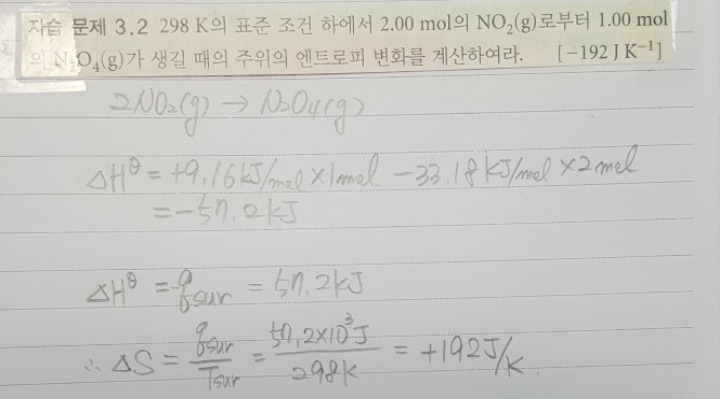 자습 문제 3.2 298 K의 표준 조건 하에서 2.00 mol의 NO₂(g)로부터 1.00 mol
의 N₂O₄(g)가 생길 때의 주위의 엔트로피 변화를 계산하여라. [−192 J K⁻¹]
2NO₂(g) → N₂O₄(g)
ΔH^θ = +9.16 kJ/mol × 1mol − 33.18 kJ/mol × 2 mol
= −57.2 kJ
ΔH^θ = −q_sur = 57.2 kJ
∴ ΔS = q_sur/T_sur = 57.2×10³J/298K = +192 J/K.